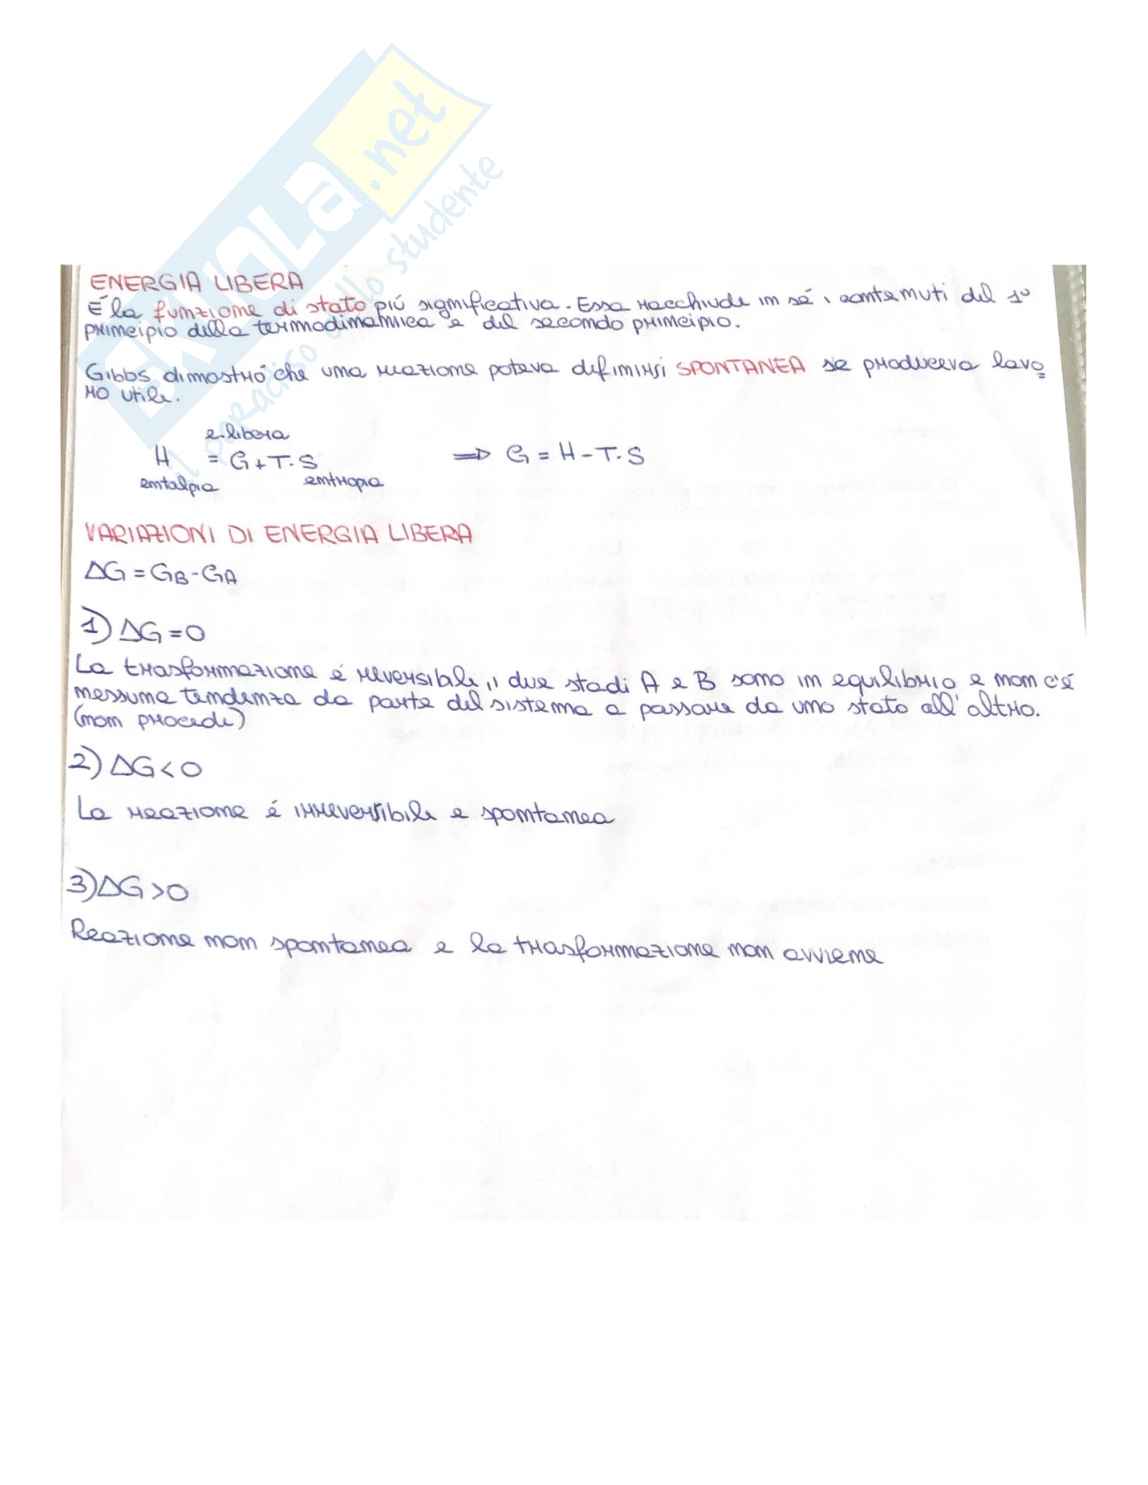 SKUOLA.net
il paradiso dello studente
ENERGIA LIBERA
É la funzione di stato piú significativa. Essa racchiude in sé i contenuti del 1°
principio della termodinamica e del secondo principio.
Gibbs dimostró che una reazione poteva definirsi SPONTANEA se produceva lavo
ro utile.
e.libera
H = G+T·S ⇒ G = H-T·S
entalpia entropia
VARIAZIONI DI ENERGIA LIBERA
ΔG = GB-GA
1) ΔG=0
La trasformazione é reversibile, i due stadi A e B sono in equilibrio e non c'é
nessuna tendenza da parte del sistema a passare da uno stato all'altro.
(non procede)
2) ΔG<0
La reazione é irreversibile e spontanea
3) ΔG>0
Reazione non spontanea e la trasformazione non avviene